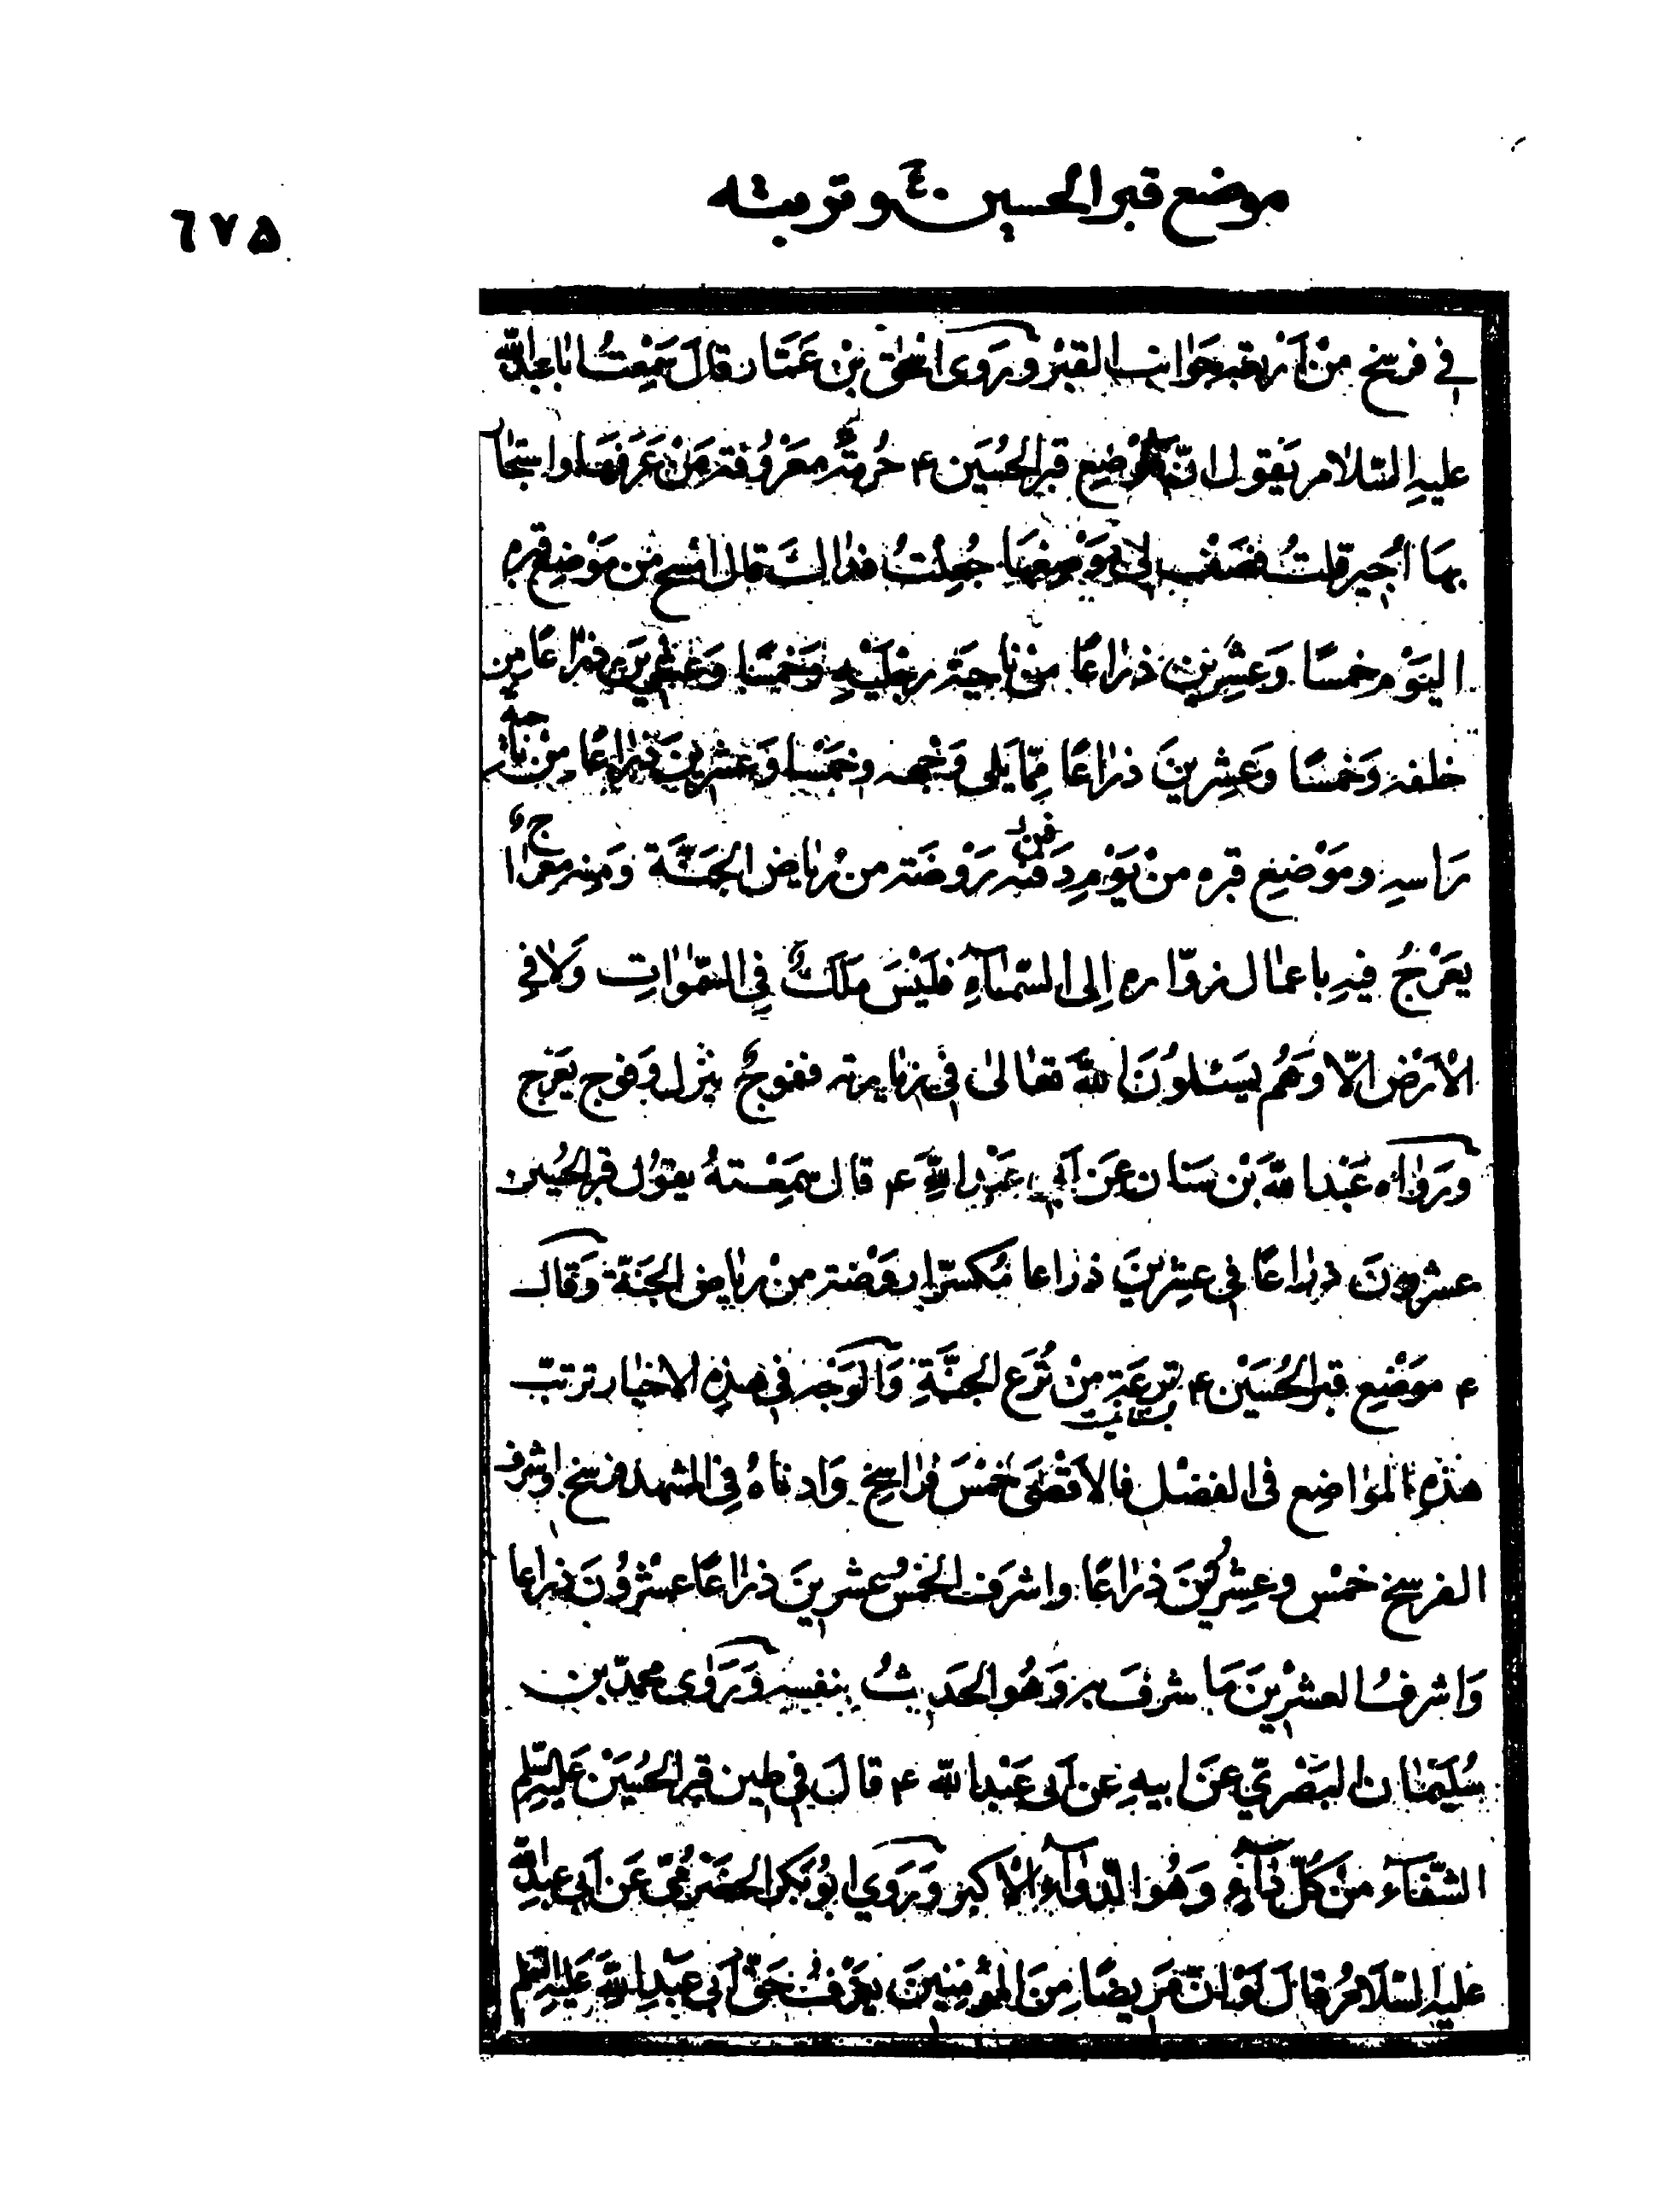 موضع قبر الحسين ع وتربته
٦٧۵
في فرسخ مِنْ اَرْبَعَةِ جَوَانِبِ القَبْرِ وَرَوى اِسْحٰق بْن عَمَّار قالَ سَمِعْتُ اَبا عَبدِ اللّه
عليهِ السّلام يَقول انّ لموْضِع قبرِ الحُسَين ؏ حُرمَةً مَعْرُوفة مَنْ عَرَفَها واسْتَجٰار
بهَا اُجيرَ قلتُ فصَفْ لي مَوْضِعَهَا جُعِلْتُ فداك قال امْسح مِن مَوْضِع قبره
اليَوْم خمسًا وَعشِرينَ ذرٰاعًا مِنْ ناحِيَة رِجْلَيْهِ وَخَمْسًا وَعشْرِينَ ذِرٰاعًا مِن
خلفه وَخمسًا وعشِرينَ ذرٰاعًا مِمّا يَلي وَجْهه وخَمْسا وَعشرينَ ذِرٰاعًا مِنْ ناحية
رَاسهِ ومَوْضع قبره منْ يَوْم دُفِنَ فيه رَوْضَة من رياض الجَنَّة وَمِنه مِعرٰاج
يعَرْجُ فيهِ باعمٰال زوّاره اِلى السّمآءِ فلَيْسَ مَلَكٌ فِي السّمٰوٰاتِ وَلاٰ فِي
الاْرَضْ الاّ وَهُم يَسَئلُونَ اللّهَ تعٰالىٰ في زيٰارته ففوجٌ ينْزل وَفوج يعَرج
وَرَوٰاه عَبْد اللّه بَنْ سَنان عَن اَبي عَبْدِ اللّهِ ؏ قال سَمِعْتهُ يقوُل قبر الحُسَين
عشروُنَ ذرٰاعًا في عشِرْينَ ذرٰاعا مُكسّرا روَضة منْ رياض الجنَّة وَقال
؏ مَوْضِع قبر الحُسَيْن ؏ ترعَة مِنْ تُرَع الجنَّةِ وَالوَجْه في هذِه الاخبٰار ترتبّ
هٰذِهِ المَوٰاضِع في الفضْل فالاَقْصَىٰ خَمْسَ فرٰاسِخ وَادناهُ مِنَ المشهد فرسخ واشرف
الفرسخ خمْس وعِشرُينَ ذرٰاعًا واشرَف الخمْس وعشرينَ ذرٰاعًا عشْروُنَ ذرٰاعا
وَاشرفُ العشرْينَ مَا شرفَ به وَهُو الحَديثُ بنفسِه وَرَوٰى محمدّ بن
سُلَيَمٰان البَصْريّ عَن ابيهِ عن اَبي عَبْد اللّه ؏ قالَ في طين قبر الحُسَيْن عَليهِ السّلم
الشّفآء مِنْ كلّ دٰآءٍ وَهُو الدّوٰآءُ الاْكبر وَرَوي ابُو بَكر الحَضرَميّ عَن اَبي عبدِ اللّه
عليهِ السَّلامُ قالَ لَوْ انّ مَريضًا مِنَ المؤْمِنينَ يعَرْفُ حَقّ اَبي عَبْدِ اللّهِ عَليهِ السّلم